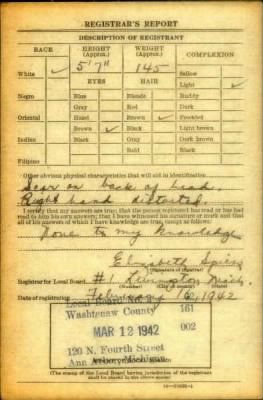 REGISTRAR'S REPORT
DESCRIPTION OF REGISTRANT
RACE HEIGHT (Approx.) WEIGHT (Approx.) COMPLEXION
5'7" 145
White ✓ Sallow
EYES HAIR Light ✓
Negro Blue Blonde Ruddy
Gray Red Dark
Oriental Hazel Brown ✓ Freckled
Brown ✓ Black Light brown
Indian Black Gray Dark brown
Bald Black
Filipino
Other obvious physical characteristics that will aid in identification
Scar on back of head.
Right hand distorted.
I certify that my answers are true; that the person registered has read or has had
read to him his own answers; that I have witnessed his signature or mark and that
all of his answers of which I have knowledge are true, except as follows:
None to my knowledge
Elizabeth
(Signature of registrar)
Registrar for Local Board #1 Livingston Mich.
(Number) (City or county) (State)
Date of registration February 16, 1942
Local Board No. 1
Washtenaw County 161
MAR 12 1942 002
120 N. Fourth Street
Ann Arbor, Michigan
(The stamp of the Local Board having jurisdiction of the registrant